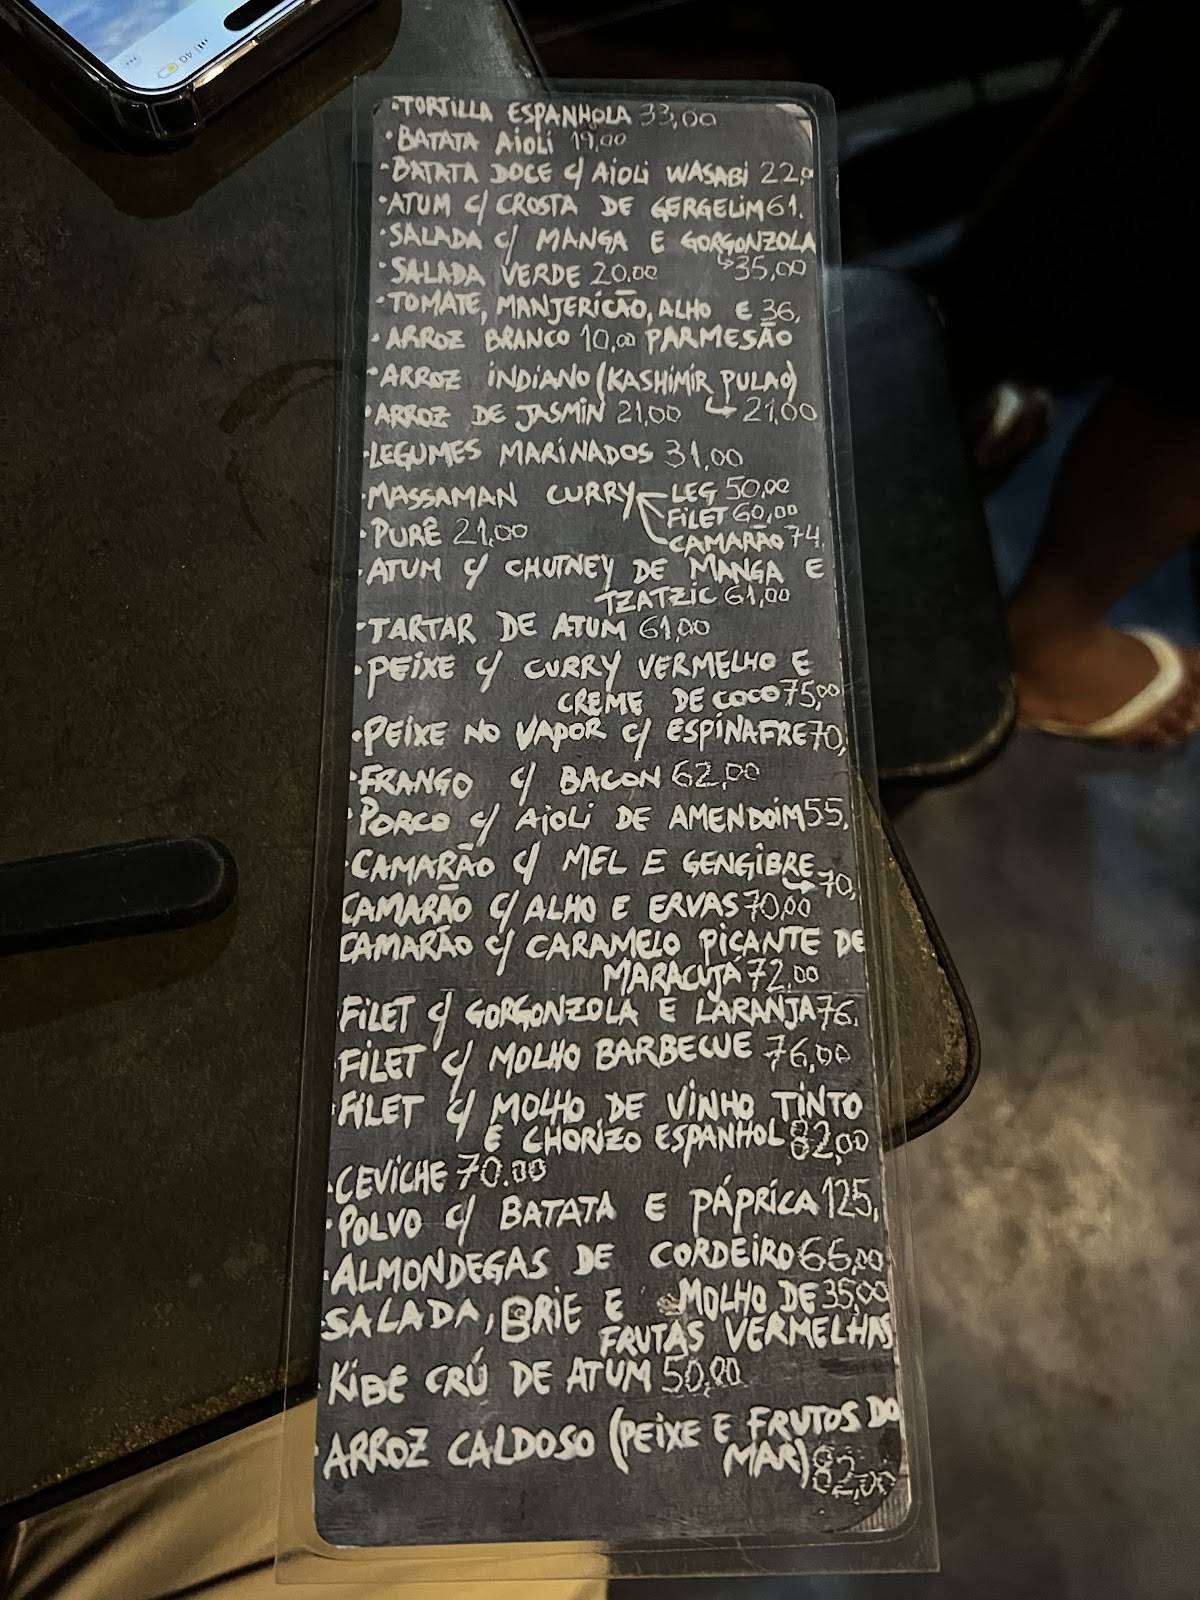 4G
·TORTILLA ESPANHOLA 33,00
·BATATA AIOLI 19,00
·BATATA DOCE C/ AIOLI WASABI 22,0
·ATUM C/ CROSTA DE GERGELIM 61.
·SALADA C/ MANGA E GORGONZOLA
·SALADA VERDE 20,00 ↳35,00
·TOMATE, MANJERICÃO, ALHO E 36,
·ARROZ BRANCO 10,00 PARMESÃO
·ARROZ INDIANO (KASHIMIR PULAO)
·ARROZ DE JASMIN 21,00 ↳ 21,00
·LEGUMES MARINADOS 31,00
·MASSAMAN CURRY LEG 50,00
FILET 60,00
·PURÊ 21,00 CAMARÃO 74,
·ATUM C/ CHUTNEY DE MANGA E
TZATZIC 61,00
·TARTAR DE ATUM 61,00
·PEIXE C/ CURRY VERMELHO E
CREME DE COCO 75,00
·PEIXE NO VAPOR C/ ESPINAFRE 70,
·FRANGO C/ BACON 62,00
·PORCO C/ AIOLI DE AMENDOIM 55,
·CAMARÃO C/ MEL E GENGIBRE
↳70,
CAMARÃO C/ ALHO E ERVAS 70,00
CAMARÃO C/ CARAMELO PICANTE DE
MARACUJÁ 72,00
FILET C/ GORGONZOLA E LARANJA 76,
·FILET C/ MOLHO BARBECUE 76,00
·FILET C/ MOLHO DE VINHO TINTO
E CHORIZO ESPANHOL 82,00
·CEVICHE 70.00
·POLVO C/ BATATA E PÁPRICA 125,
·ALMONDEGAS DE CORDEIRO 66,00
SALADA, BRIE E MOLHO DE 35,00
FRUTAS VERMELHAS
KIBE CRÚ DE ATUM 50,00
·ARROZ CALDOSO (PEIXE E FRUTOS DO
MAR) 82,00